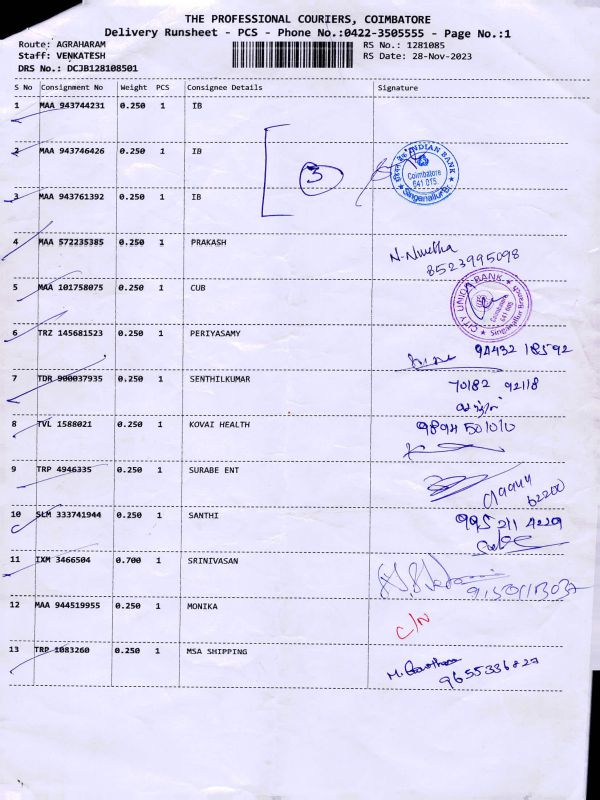 THE PROFESSIONAL COURIERS, COIMBATORE
Delivery Runsheet - PCS - Phone No.:0422-3505555 - Page No.:1
Route: AGRAHARAM RS No.: 1281085
Staff: VENKATESH RS Date: 28-Nov-2023
DRS No.: DCJB128108501
S No Consignment No Weight PCS Consignee Details Signature
1 MAA 943744231 0.250 1 IB
2 MAA 943746426 0.250 1 IB
3
INDIAN BANK
Coimbatore
641 015
Singanallur Br.
3 MAA 943761392 0.250 1 IB
4 MAA 572235385 0.250 1 PRAKASH
8523995098
5 MAA 101758075 0.250 1 CUB
CITY UNION BANK
Coimbatore
641 005
Singanallur Branch
6 TRZ 145681523 0.250 1 PERIYASAMY
94432 18592
7 TDR 900037935 0.250 1 SENTHILKUMAR
70182 92118
8 TVL 1588021 0.250 1 KOVAI HEALTH
9894501010
9 TRP 4946335 0.250 1 SURABE ENT
62200
10 SLM 333741944 0.250 1 SANTHI
995 211 4229
11 IXM 3466504 0.700 1 SRINIVASAN
12 MAA 944519955 0.250 1 MONIKA
C/N
13 TRP 1083260 0.250 1 MSA SHIPPING
9655336827